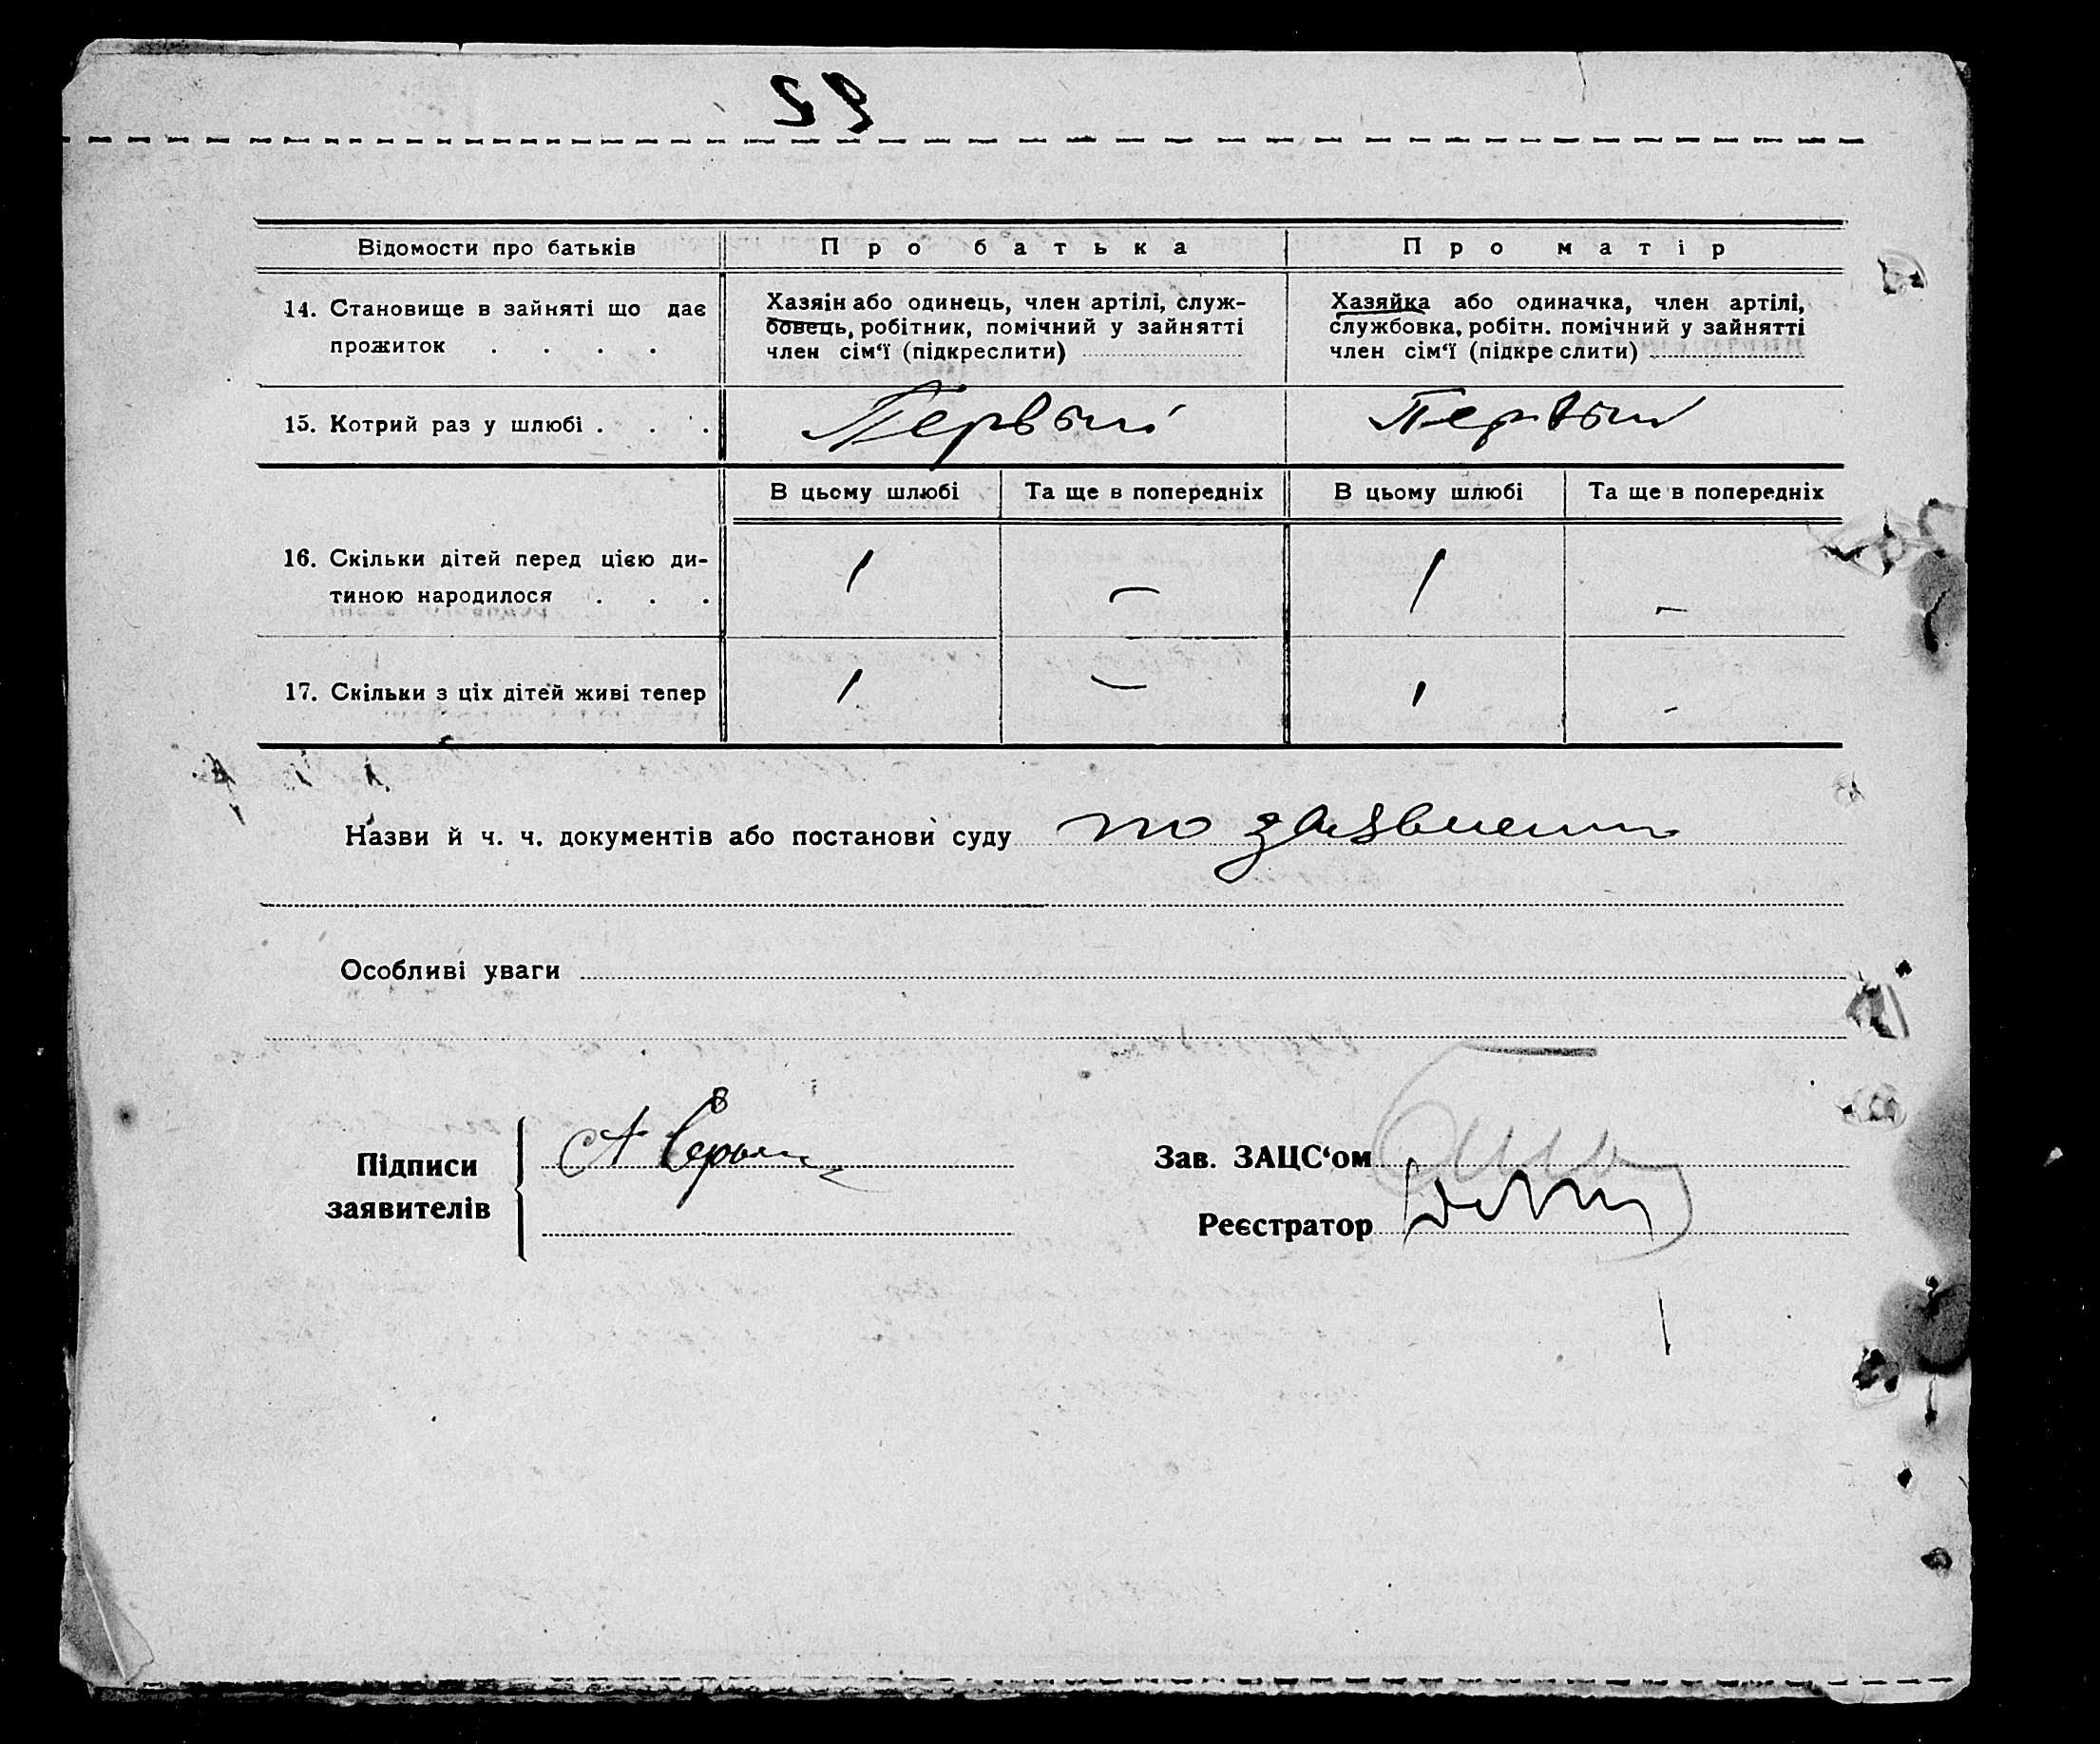 Відомости про батьків Про батька Про матір
14. Становище в зайняті що дає
прожиток . . . .
Хазяїн або одинець, член артілі, служ-
бовець, робітник, помічний у зайнятті
член сім‘ї (підкреслити)
Хазяйка або одиначка, член артілі,
службовка, робітн. помічний у зайнятті
член сім‘ї (підкреслити)
15. Котрий раз у шлюбі . . . Первый Первый
В цьому шлюбі Та ще в попередніх В цьому шлюбі Та ще в попередніх
16. Скільки дітей перед цією ди-
тиною народилося . . . 1 — 1 -
17. Скільки з ціх дітей живі тепер 1 — 1 -
Назви й ч. ч. документів або постанови суду по заявлению
Особливі уваги
Підписи
заявителів
Зав. ЗАЦС‘ом
Реєстратор